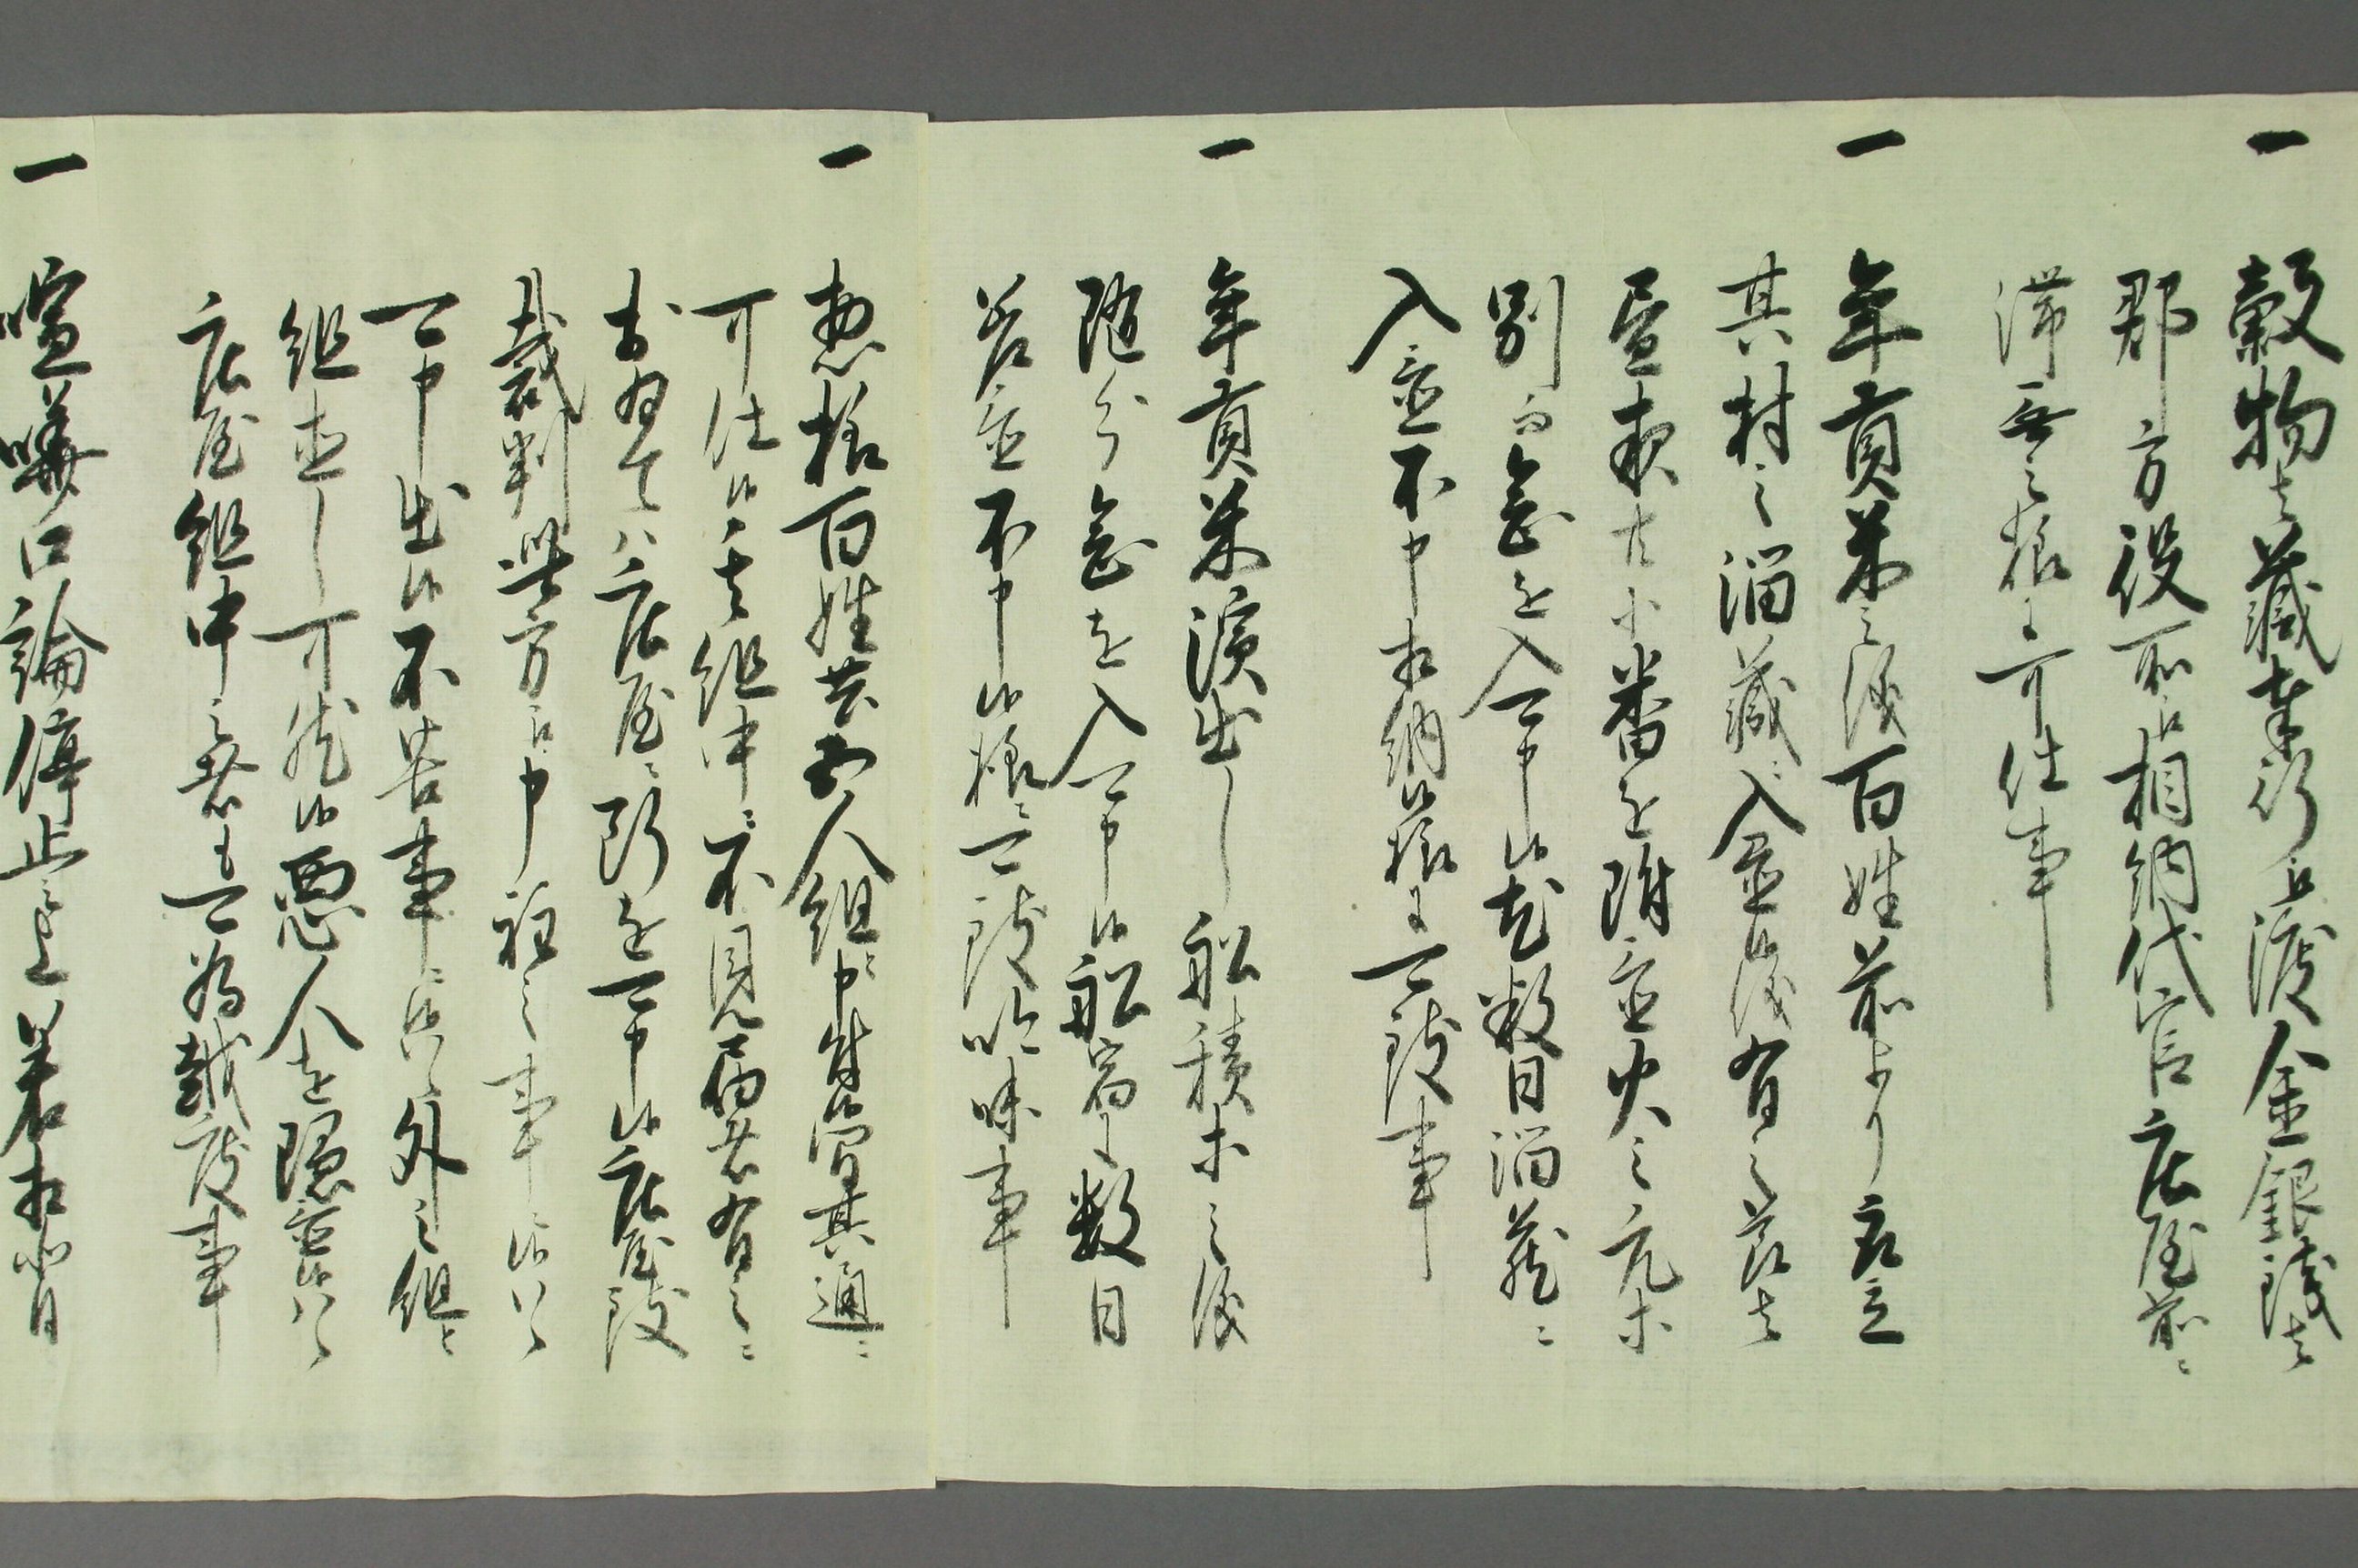 一 穀物者蔵奉行江渡金銀銭者
郡方役所江相納代官庄屋前ニ
滞無之様ニ可仕事
一 年貢米之儀百姓前より取立
其村之溜蔵ニ入置候儀有之節者
昼夜大小番を附置火之元等
別而念を入可申候尤数日溜蔵ニ
入置不申相納候様ニ可致事
一 年貢米濱出し船積等之儀
随分念を入可申候船宿ニ数日
差置不申候様ニ可致吟味事
一 惣様百姓共五人組ニ申付候間其通ニ
可仕候若組中ニ不見届者有之ニ
おゐてハ庄屋ニ断を可申候庄屋致
裁判此方江申程之事ニ候ハヽ
可申出候不苦事ニ候ハヽ外之組ニ
組直し可然候悪人を隠置候ハヽ
庄屋組中之者も可為越度事
一 喧嘩口論停止之上若相背